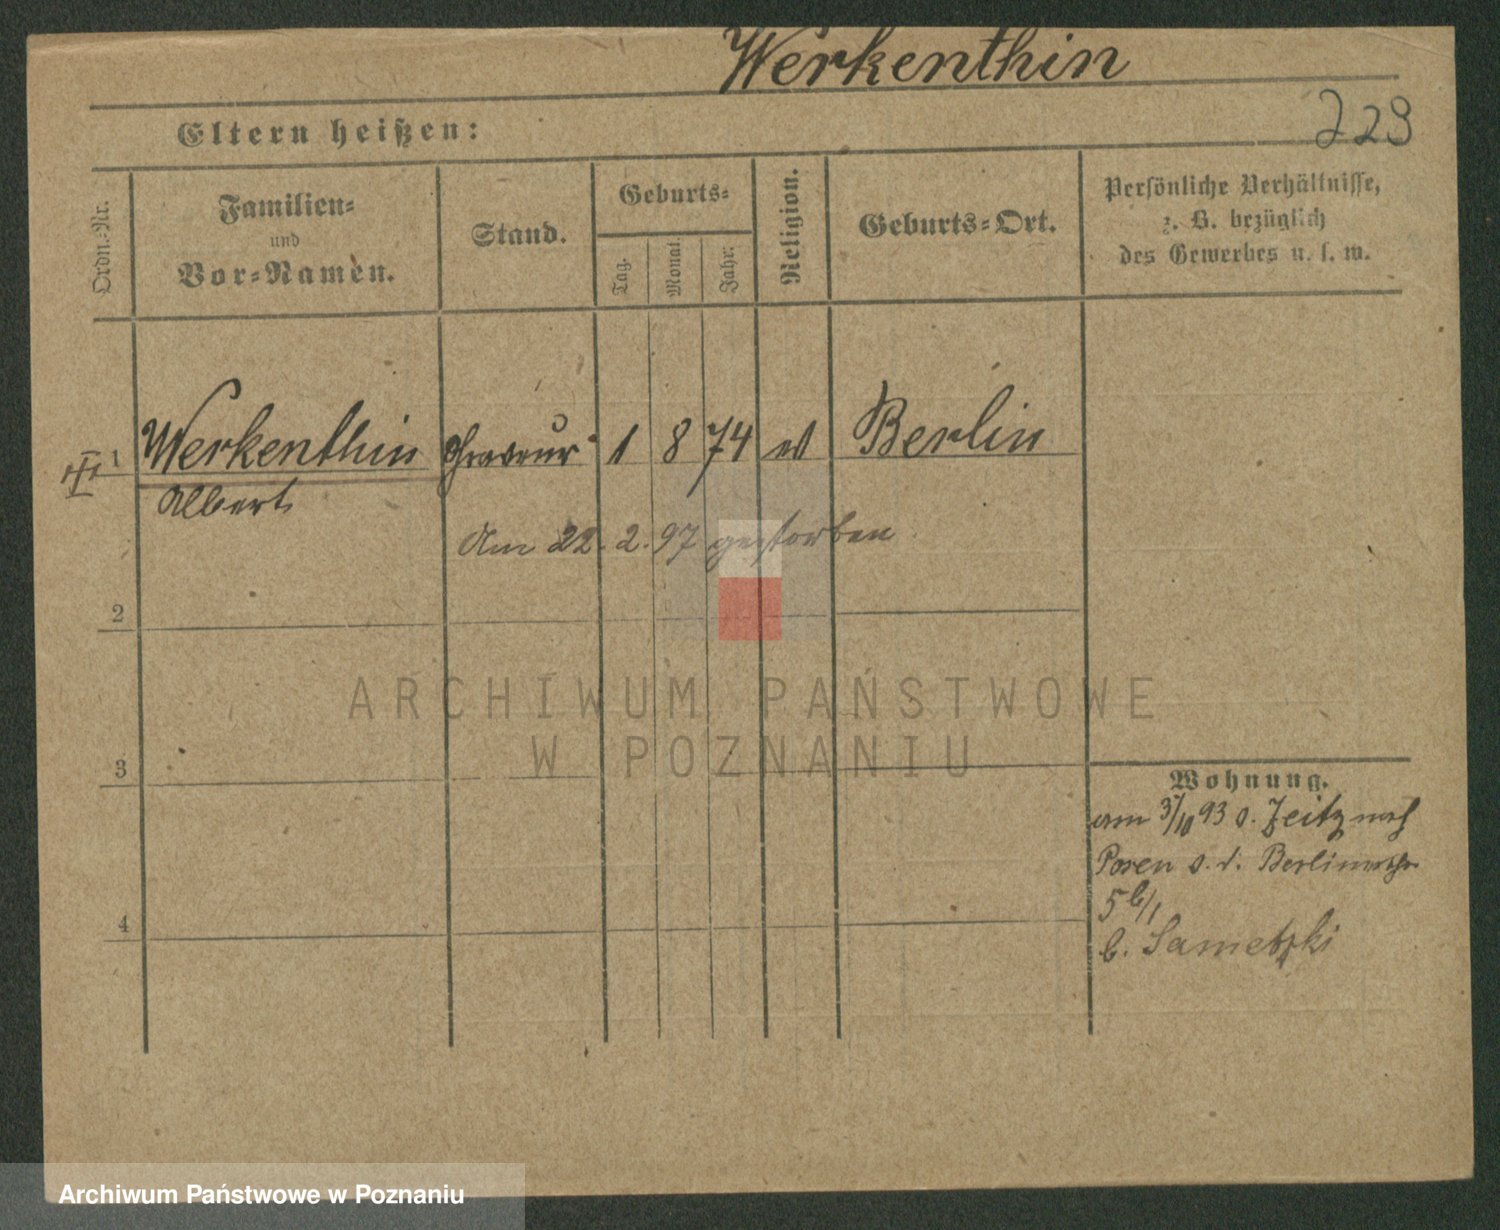 Werkenthin
229
Eltern heißen:
Ordn.-Nr.
Familien-
und
Vor-Namen.
Stand.
Geburts-
Tag.
Monat.
Jahr.
Religion.
Geburts-Ort.
Persönliche Verhältnisse,
z. B. bezüglich
des Gewerbes u. s. w.
III 1 Werkenthin Graveur 1 8 74 ev Berlin
Albert
Am 22. 2. 97 gestorben
2
3
4
ARCHIWUM PAŃSTWOWE
W POZNANIU
Wohnung.
am 3/10 93 v. Zeitz nach
Posen
5
b. Sametzki
Archiwum Państwowe w Poznaniu